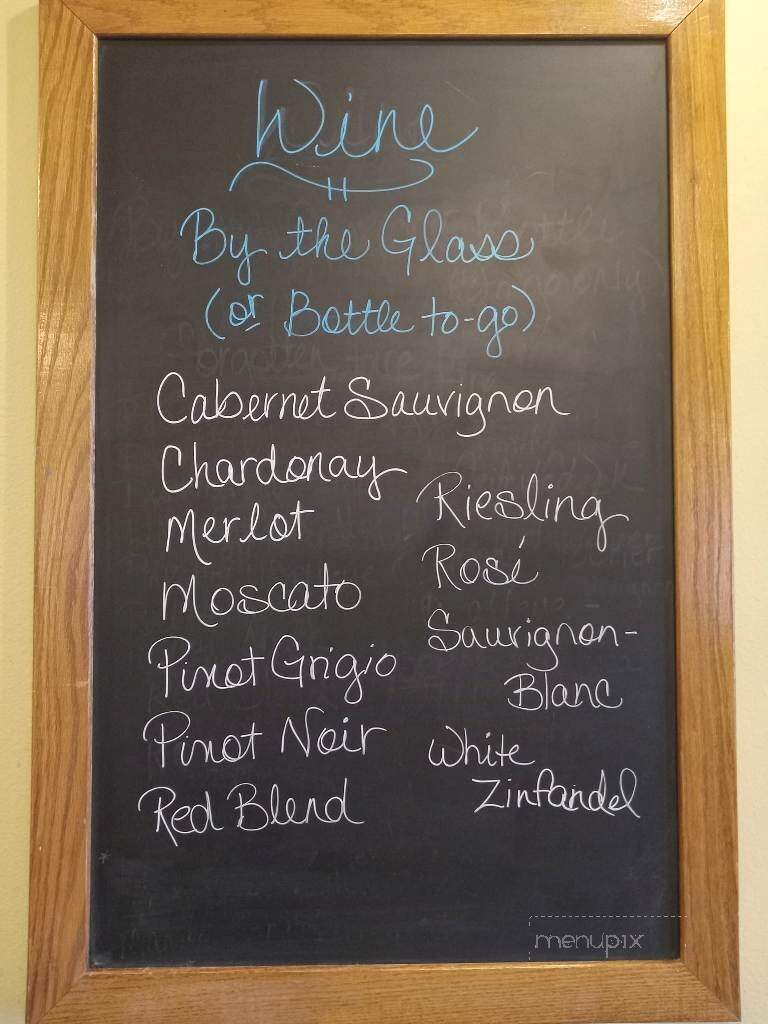 Wine
By the Glass
(or Bottle to-go)
Cabernet Sauvignon
Chardonay
Merlot
Moscato
Pinot Grigio
Pinot Noir
Red Blend
Riesling
Rosé
Sauvignon-
Blanc
White
Zinfandel
menupix